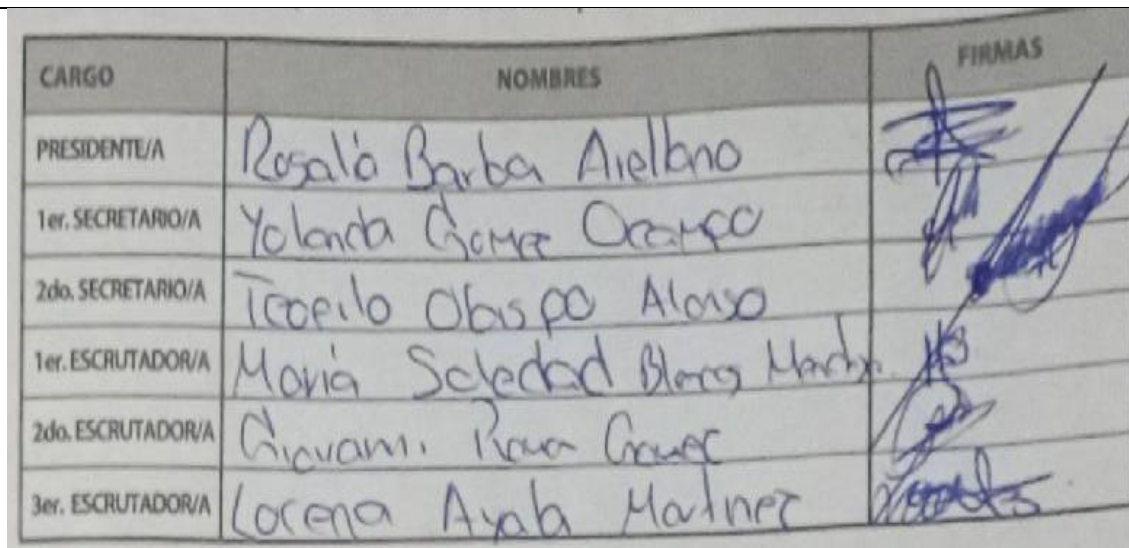 CARGO NOMBRES FIRMAS
PRESIDENTE/A Rosalá Barba Arellano
1er. SECRETARIO/A Yolanda Gomez Ocampo
2do. SECRETARIO/A Teofilo Obispo Alonso
1er. ESCRUTADOR/A Maria Soledad
2do. ESCRUTADOR/A Giovani Gomez
3er. ESCRUTADOR/A Lorena Ayala Martinez